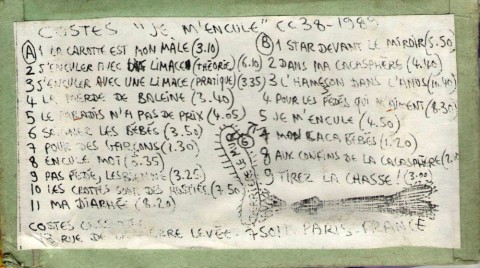 COSTES "JE M'ENCULE" CC38-1989
A
1 LA CAROTTE EST MON MÂLE (3.10)
2 S'ENCULER AVEC UNE LIMACE (THÉORIE) (6.10)
3 S'ENCULER AVEC UNE LIMACE (PRATIQUE) (3.35)
4 LA MERDE DE BALEINE (3.40)
5 LE PARADIS N'A PAS DE PRIX (4.05)
6 LES BÉBÉS (3.50)
7 POUR DES GARÇONS (1.30)
8 ENCULE MOI (5.35)
9 PAS PÉDÉ, LESBIENNE (3.25)
10 LES SONT DES HOSTIES (7.50)
11 MA DIARHÉE (8.20)
B
1 STAR DEVANT LE MIROIR (5.50)
2 DANS MA CACASPHÈRE (4.40)
3 L'HAMEÇON DANS L'ANUS (4.40)
4 POUR LES PÉDÉS QUI M'AIMENT (8.30)
5 JE M'ENCULE (4.50)
6
7 MON CACA BÉBÉS (1.20)
8 AUX CONFINS DE LA CACASPHÈRE
9 TIREZ LA CHASSE! (3.00)
COSTES
RUE DE LA PIERRE LEVÉE. 75011 PARIS. FRANCE